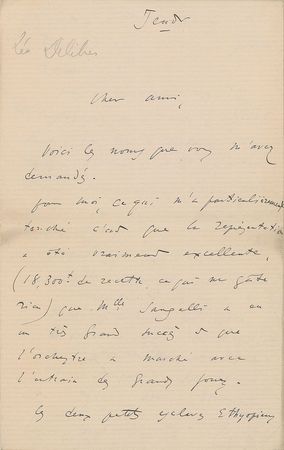 Jeudi
Léo Delibes
Cher ami,
Voici les noms que vous m'avez
demandés.
Pour moi, ce qui m'a particulièrement
touché c'est que la représentation
a été vraiment excellente,
(18,300f de recette, ce qui ne gâte
rien) que Mlle Sangalli a eu
un très grand succès et que
l'orchestre a marché avec
l'entrain des grands jours.
Les deux petits esclaves Ethyopiens